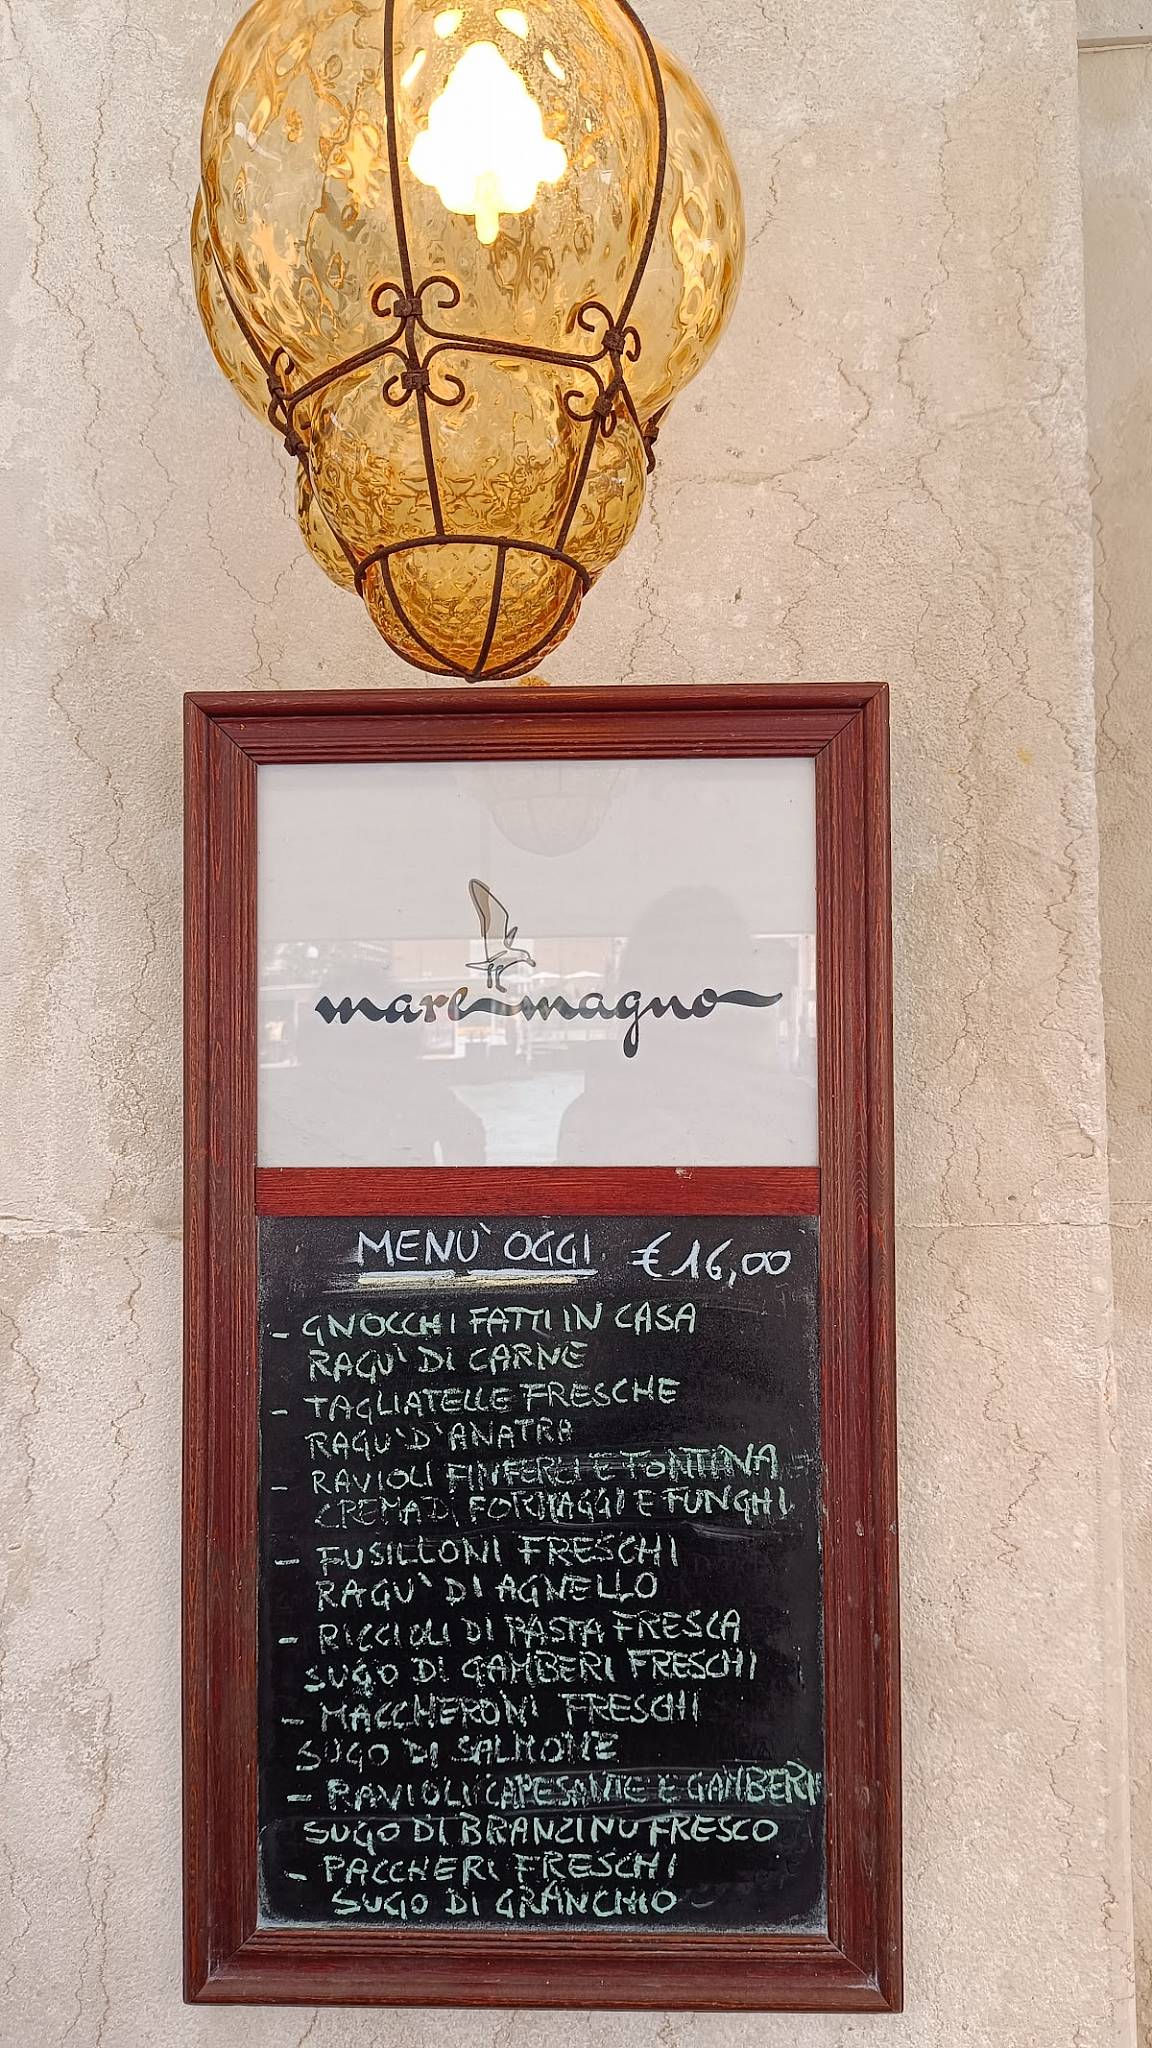 mare magno
MENU` OGGI € 16,00
- GNOCCHI FATTI IN CASA
RAGU` DI CARNE
- TAGLIATELLE FRESCHE
RAGU` D'ANATRA
- RAVIOLI FINFERLI E FONTINA
CREMA DI FORMAGGI E FUNGHI
- FUSILLONI FRESCHI
RAGU` DI AGNELLO
- RICCIOLI DI PASTA FRESCA
SUGO DI GAMBERI FRESCHI
- MACCHERONI FRESCHI
SUGO DI SALMONE
- RAVIOLI CAPESANTE E GAMBERI
SUGO DI BRANZINO FRESCO
- PACCHERI FRESCHI
SUGO DI GRANCHIO